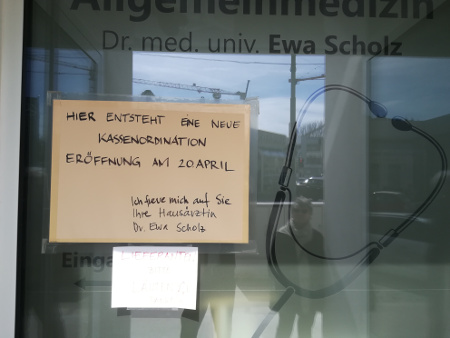 Allgemeinmedizin
Dr. med. univ. Ewa Scholz
HIER ENTSTEHT EINE NEUE
KASSENORDINATION
ERÖFFNUNG AM 20 APRIL
Ich freue mich auf Sie
Ihre Hausärztin
Dr. Ewa Scholz